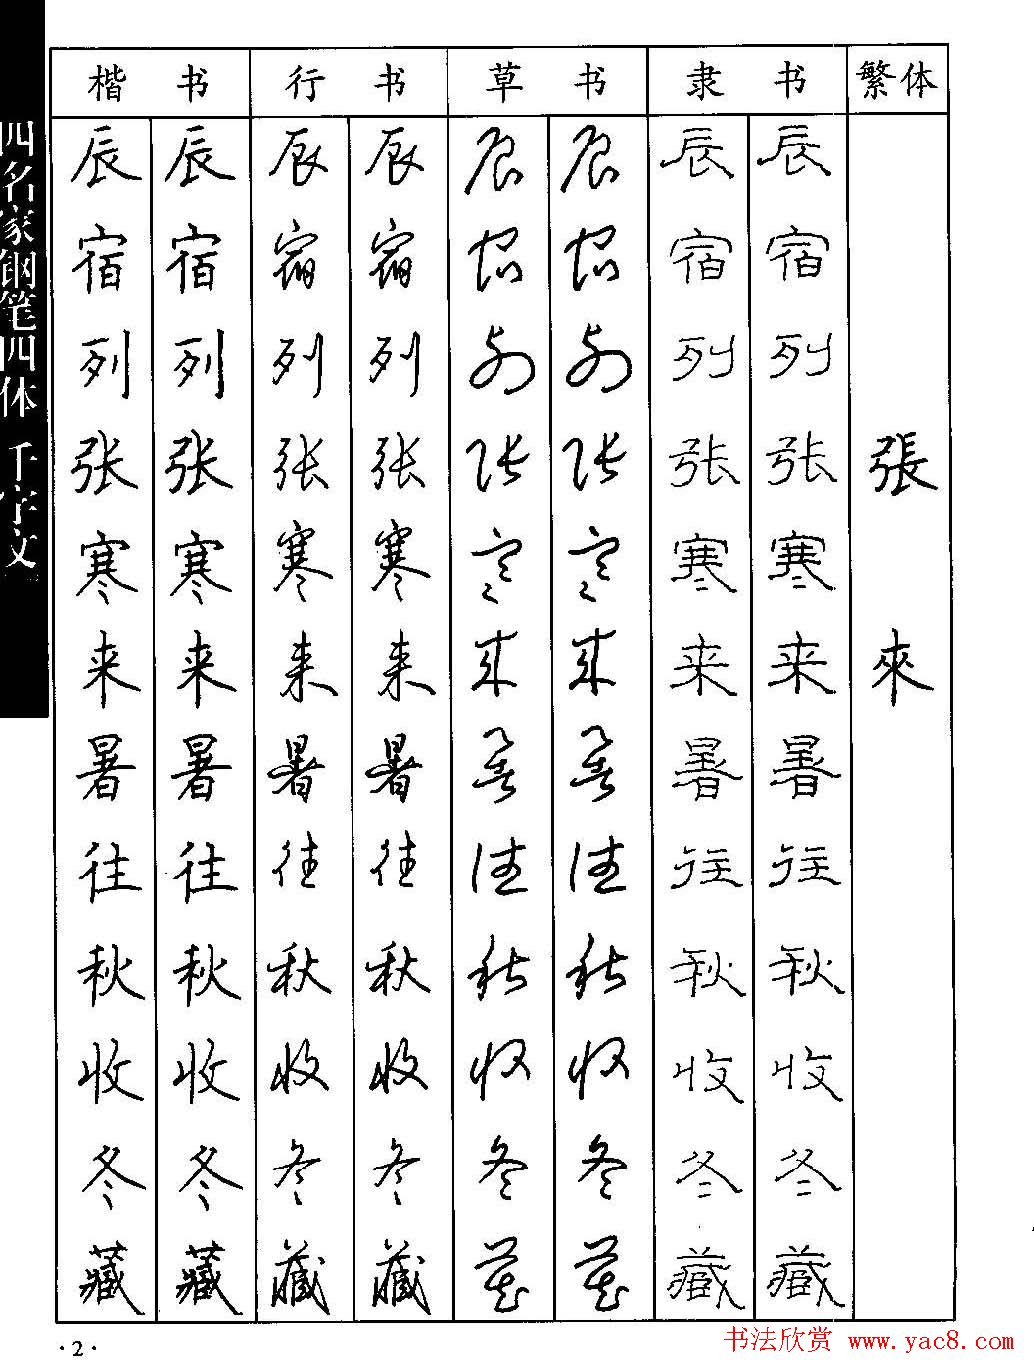 四名家钢笔四体 千字文
楷书 行书 草书 隶书 繁体
辰 辰 辰 辰 辰 辰 辰 辰
宿 宿 宿 宿 宿 宿 宿 宿
列 列 列 列 列 列 列 列
张 张 张 张 张 张 张 张 張
寒 寒 寒 寒 寒 寒 寒 寒
来 来 来 来 来 来 来 来 來
暑 暑 暑 暑 暑 暑 暑 暑
往 往 往 往 往 往 往 往
秋 秋 秋 秋 秋 秋 秋 秋
收 收 收 收 收 收 收 收
冬 冬 冬 冬 冬 冬 冬 冬
藏 藏 藏 藏 藏 藏 藏 藏
·2·
书法欣赏 www.yac8.com